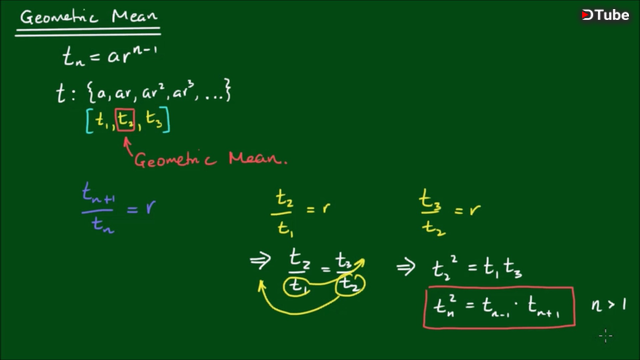 DTube
Geometric Mean
tₙ = arⁿ⁻¹
t : {a, ar, ar², ar³, ....}
[t₁, t₂, t₃]
Geometric Mean.
tₙ₊₁/tₙ = r
t₂/t₁ = r
t₃/t₂ = r
⇒ t₂/t₁ = t₃/t₂
⇒ t₂² = t₁ t₃
tₙ² = tₙ₋₁ · tₙ₊₁ n > 1